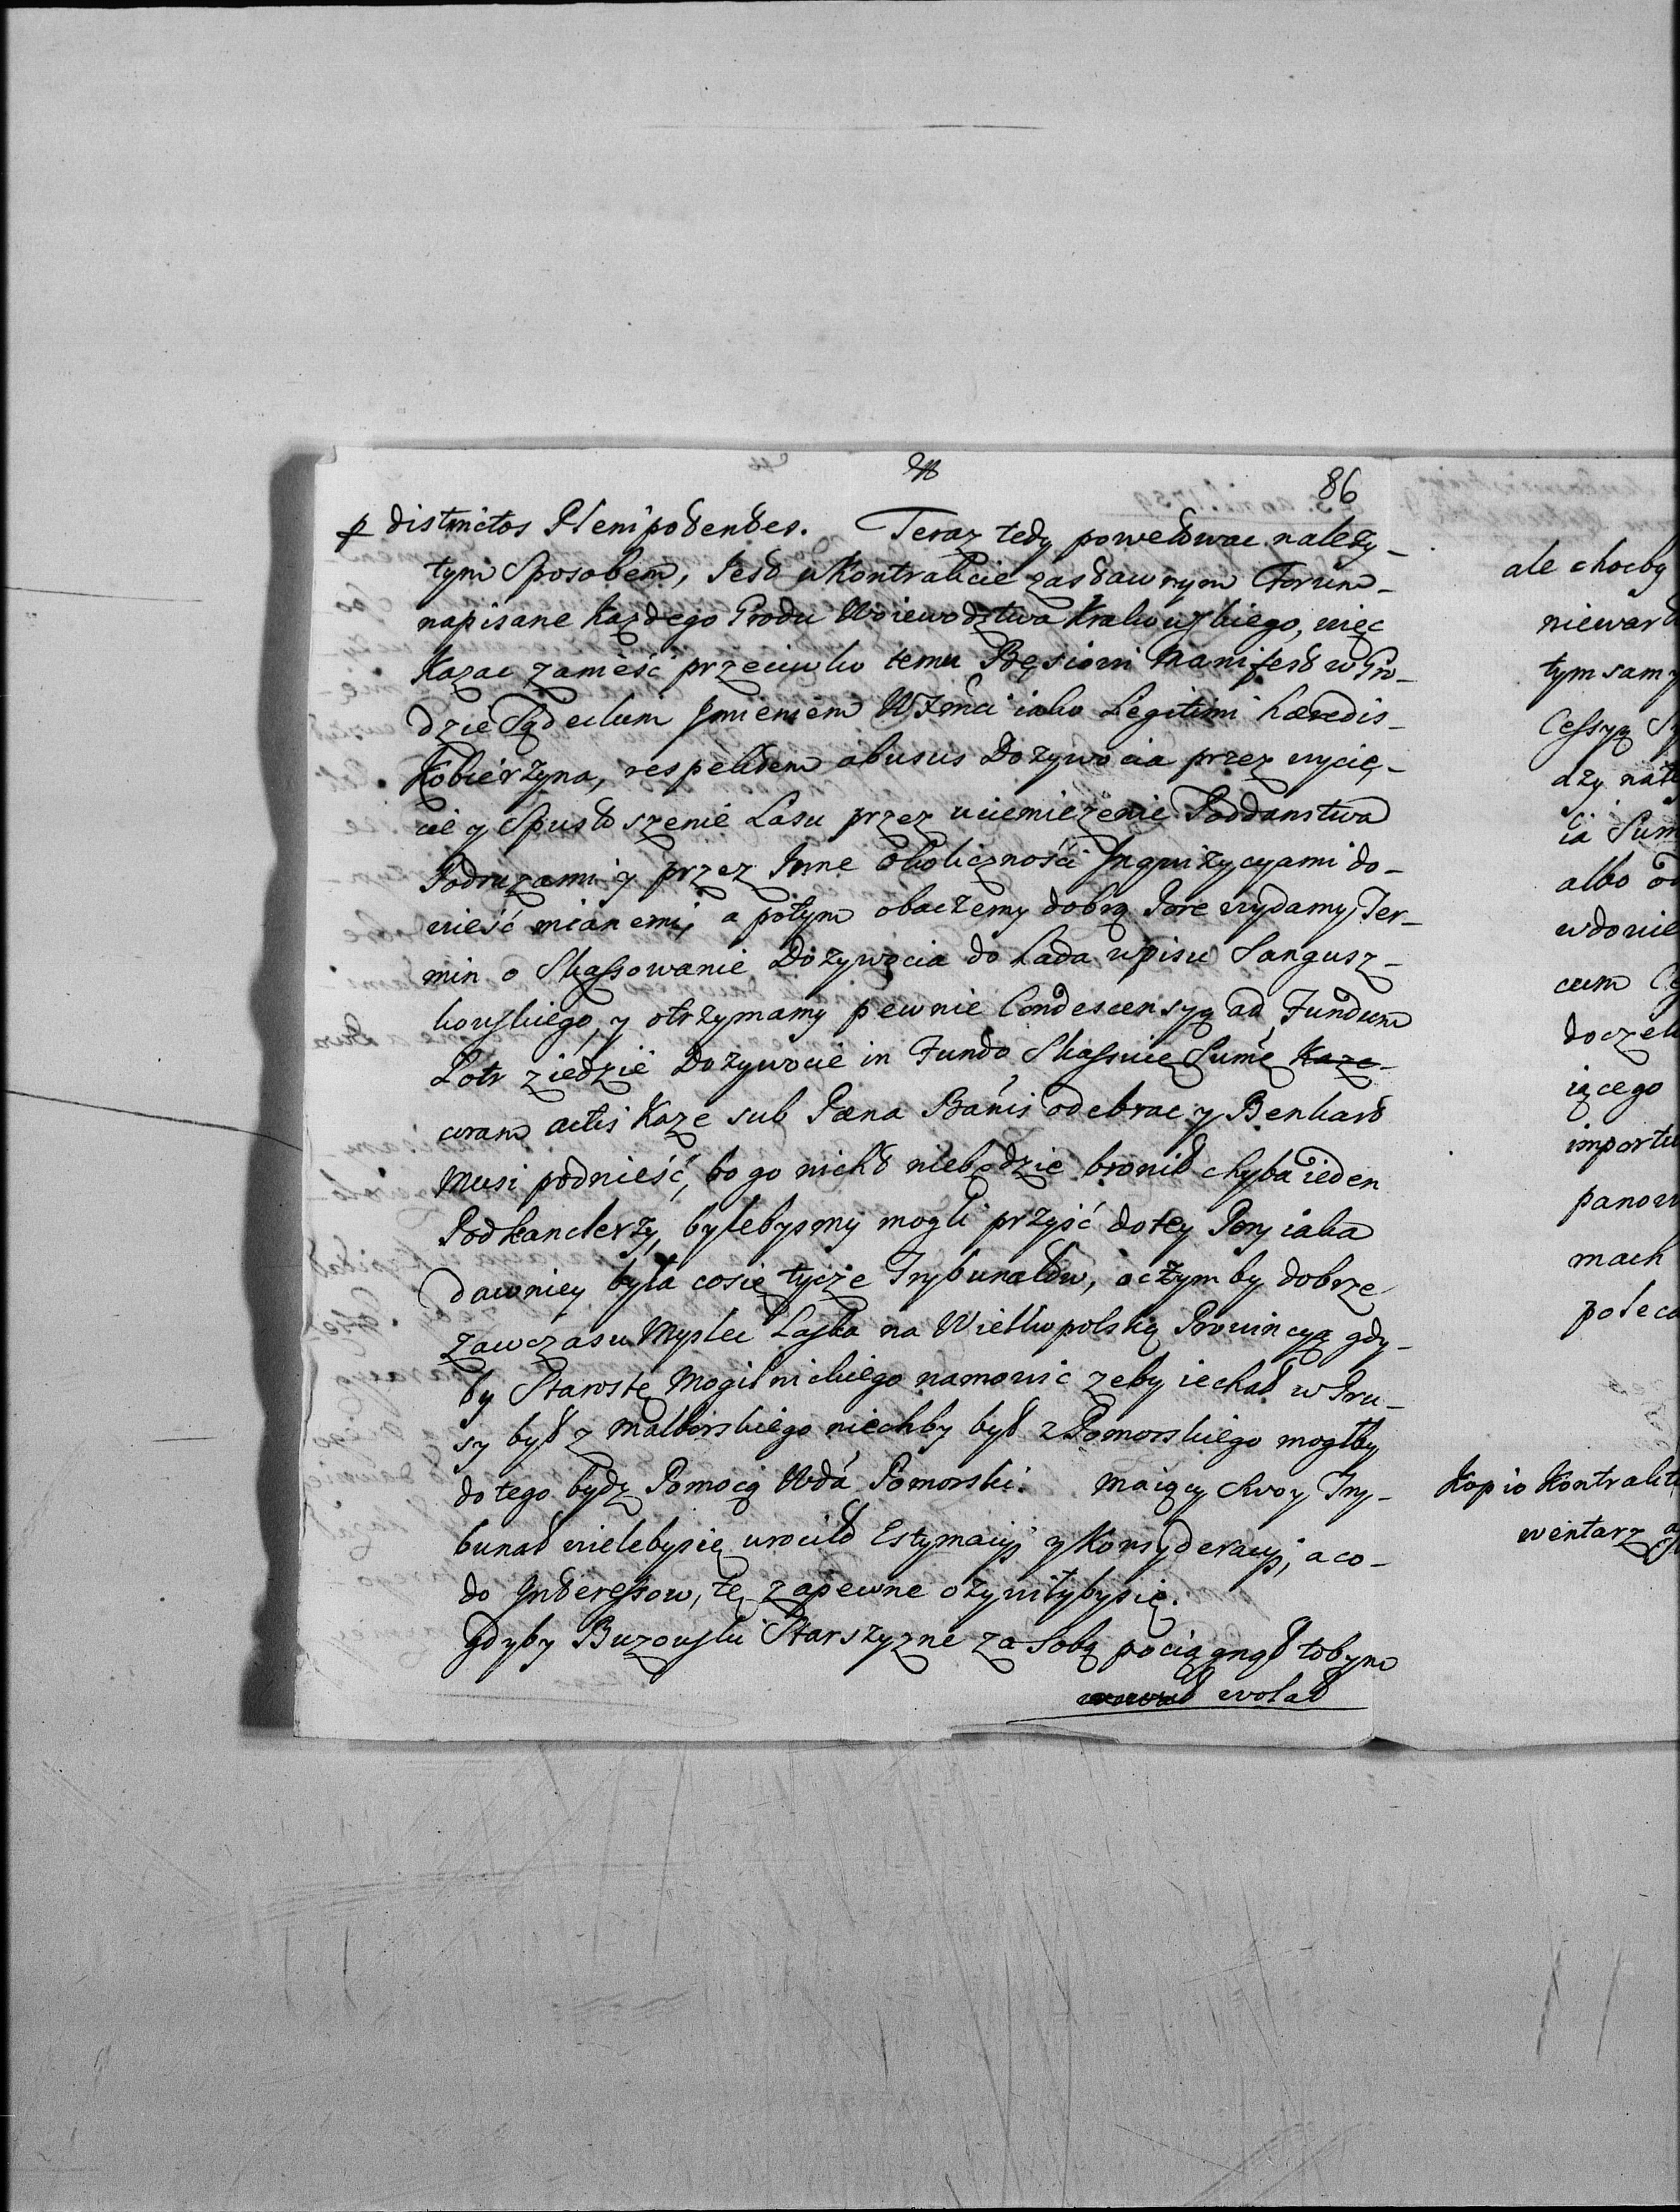 86
p distinctos Plenipotentes. Teraz tedy powetowac nalezy
tym Sposobem, Jest w Kontrakcie zastawnym Forum
napisane Kazdego Grodu Woiewodztwa Krakowskiego, więc
Kazac zamieść przeciwko temu Bęsiowi Manifest w Gro-
dzie Sądeckim Jmieniem WJmci iako Legitimi hæredis
Kobierzyna, respectem abusus Dozywocia przez wycię-
cie y Spustoszenie Lasu przez uciemiężenie Poddanstwa
Podruzami y przez Jnne okoliczności Jnqwizycyami do-
wieść mianemi, a potym obaczemy dobrą Pore wydamy Ter-
min o Skassowanie Dozywocia do Lada wpisu Sangusz-
kowskiego, y otrzymamy pewnie Condescensyą ad Fundum
Lotr ziedzie Dozywocie in Fundo Skassuie Sumę Kaze
coram actis Kaze sub Pæna Banis odebrac y Benkart
Musi podnieść, bo go nicht niebędzie bronił chyba ieden
Podkanclerzy, bylebysmy mogli przyść do tey Pory iaka
dawniey była cosię tycze Trybunałow, o czym by dobrze
zawczasu Myslec Laska na Wielkopolską Prowincyą gdy-
by Starostę Mogilnickiego namowic zeby iechał w Pru-
sy był z Malborskiego niechby był z Pomorskiego mogłby
do tego bydz Pomocą Wda Pomorski. Maiący swoy Try-
bunał wielebysię wrociło Estymacyi y Konsyderacyi, a co
do Jnteressow, te zapewne ozywiłybysię.
gdyby Buzowski Starszyzne za Sobą pociągnął tobym
wolał
ale chocby
niewar
tym samy
Cessyą
dzy nale
ia Sum
albo od
wdowie
cum
doczek
iącego
import
panow
mach
poleca
Kopia Kontrakt
wentarz